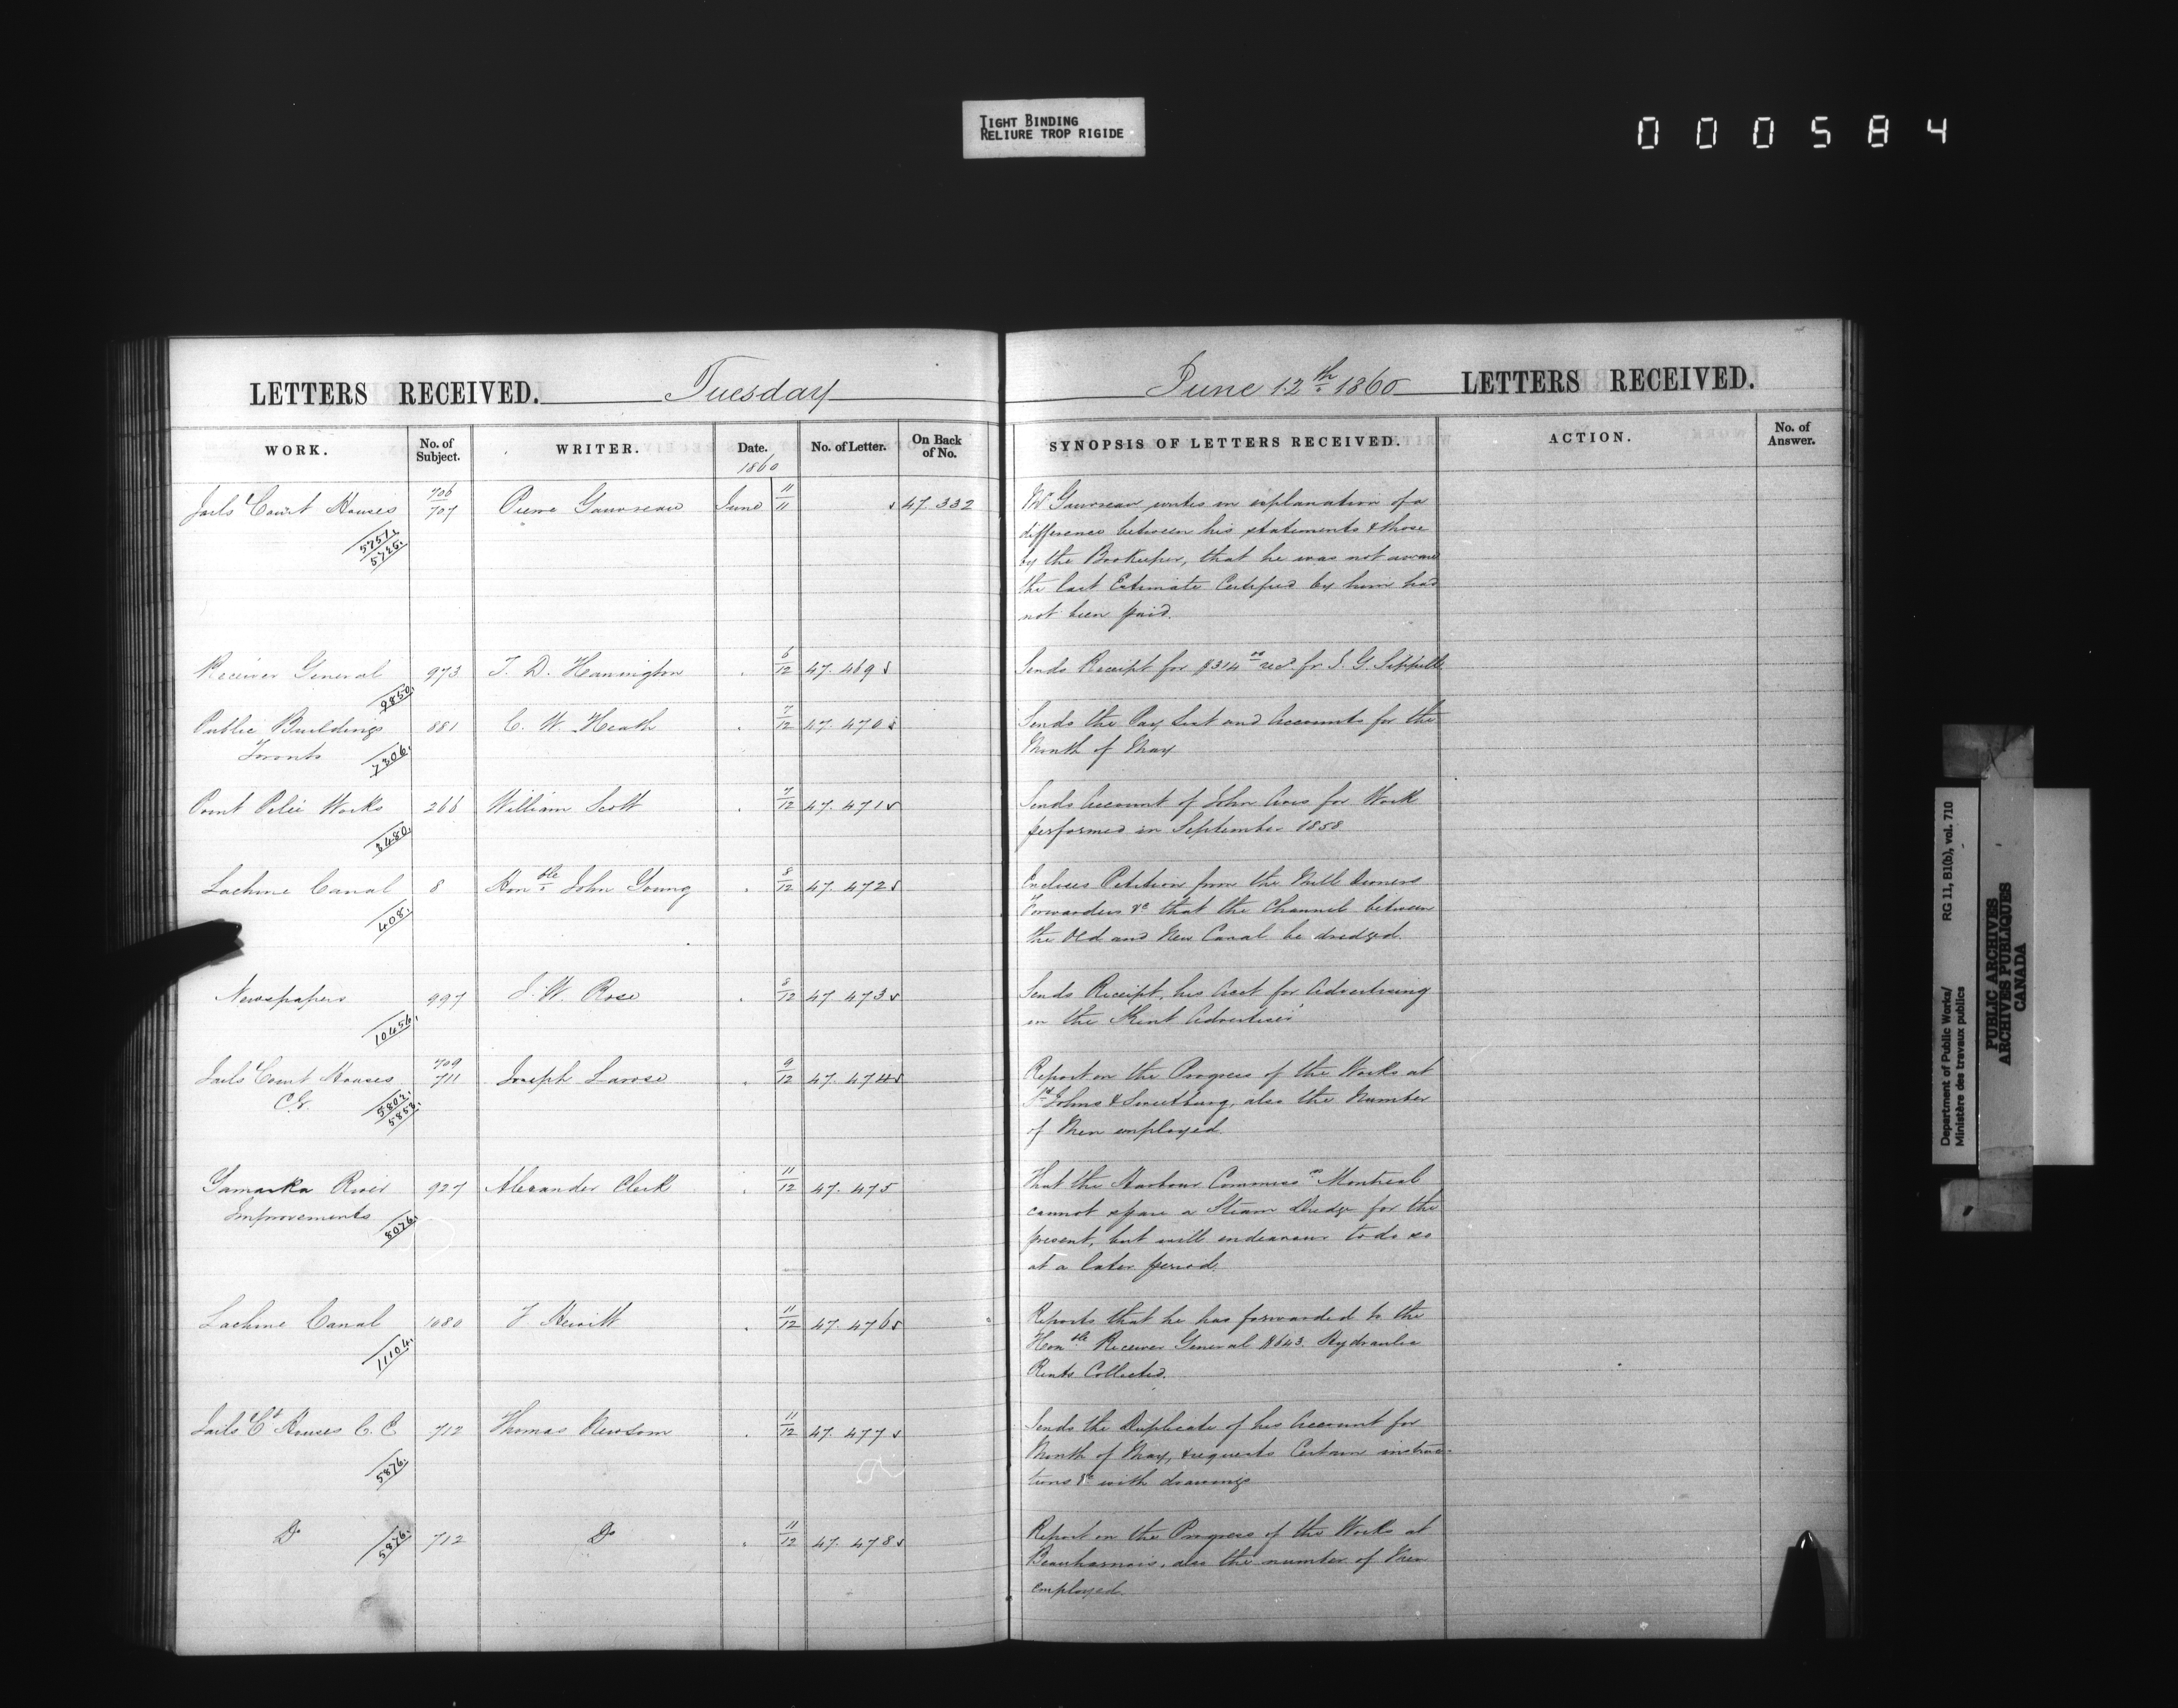 TIGHT BINDING
RELIURE TROP RIGIDE
000584
LETTERS RECEIVED. Tuesday
June 12th 1860 LETTERS RECEIVED.
WORK. No. of Subject. WRITER. Date. No. of Letter. On Back of No. SYNOPSIS OF LETTERS RECEIVED. ACTION. No. of Answer.
1860
Jails & Court Houses 706/707 Pierre Gauvreau June 11/11 47.332 Mr Gauvreau writes in explanation of a
5751.
5725.
difference between his statements & those
by the Bookeeper, that he was not aware
the last Estimate Certified by him had
not been paid.
Receiver General 973 T. D. Harrington 6/12 47.469 Sends Receipt for $314 recd. fr
9850.
Public Buildings 881 C. W. Heath 7/12 47.470 Sends the Pay List and Accounts for the
Toronto 7306. Month of May
Point Pelee Works 266 William Scott 7/12 47.471 Sends Account of John for Work
performed in September 1858
Lachine Canal 8 Honble John Young 8/12 47.472 Encloses Petition from the Mill Owners
408.
Forwarders &c that the Channel between
the Old and New Canal be dredged.
Newspapers 997 W. Rose 8/12 47.473 Sends Receipt, his Acct for Advertising
10456.
in the Kent Advertiser
Jails & Court Houses 709/711 Joseph Larose 9/12 47.474 Report on the Progress of the Works at
5802.
5853.
St Johns & Sweetsburg, also the Number
of Men employed.
Yamaska River 927 Alexander Clerk 11/12 47.475 That the Harbour Commissrs Montreal
Improvements 8076. cannot spare a Steam Dredge for the
present, but will endeavour to do so
at a later period.
Lachine Canal 1080 J Hewitt 11/12 47.476 Reports that he has forwarded to the
11104.
Honble Receiver General $643. Hydraulic
Rents Collected.
Jails & Ct Houses C.E 712 Thomas Newsom 11/12 47.477 Sends the Duplicate of his Account for
5876.
Month of May, & requests Certain instruc-
tions &c with drawings
Do 5876. 712 Do 11/12 47.478 Report on the Progress of the Works at
Beauharnois, also the number of Men
employed.
Department of Public Works/ RG 11, B1(b), vol. 710
Ministère des travaux publics
PUBLIC ARCHIVES
ARCHIVES PUBLIQUES
CANADA